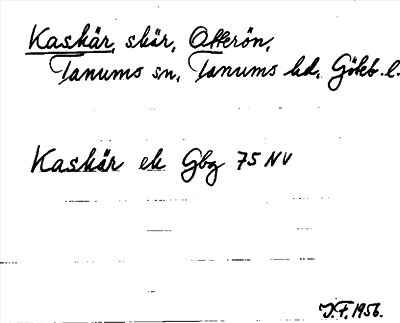 Kaskär, skär, Otterön,
Tanums sn, Tanums hd, Göteb. l.
Kaskär ek Gbg 75 NV
J.F. 1956.